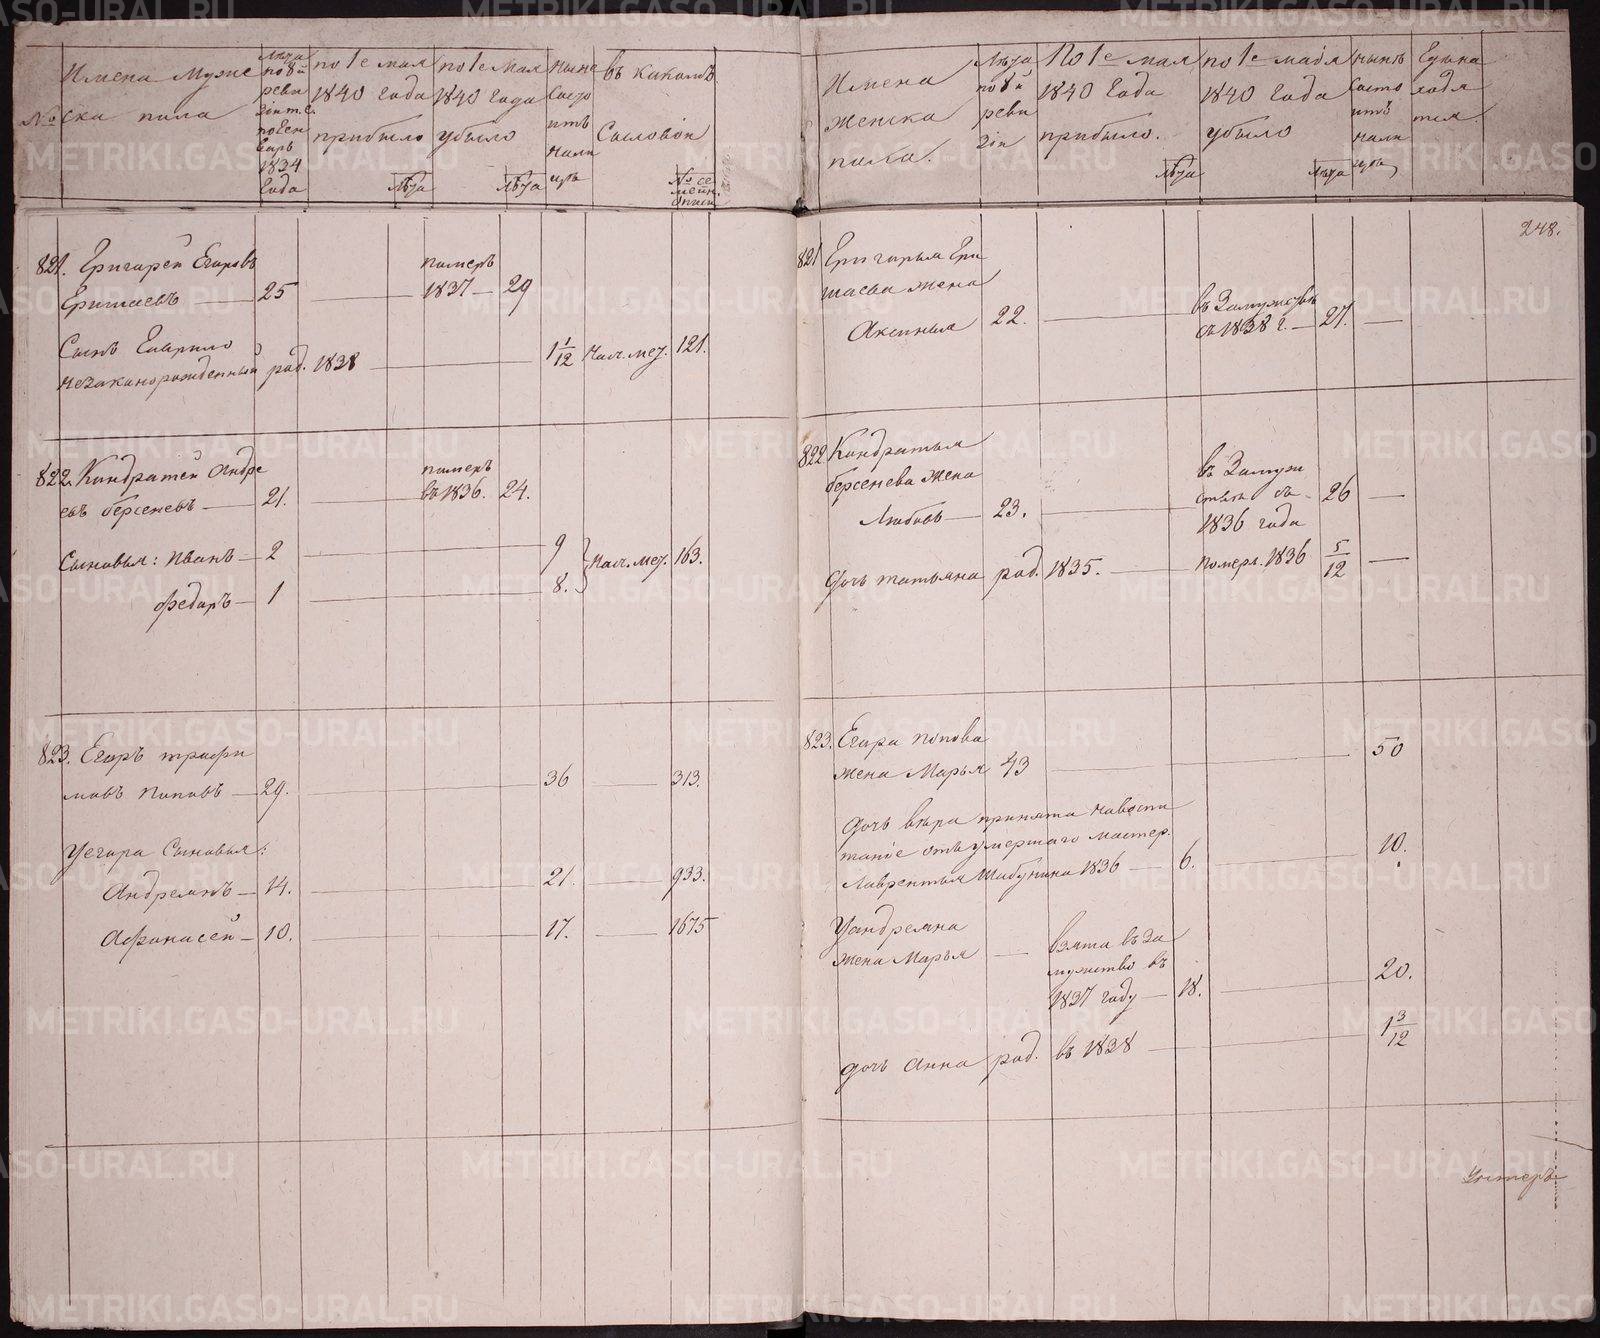 №
Имена Муже
ска пола
Лѣта
по 8й
реви
зіи т.е.
по Ген
варь
1834
Года
по 1е мая
1840 Года
прибыло
лѣта
по 1е мая
1840 Года
убыло
лѣта
ныне
Состо
итъ
нали
цо
въ какомъ
Сословіи
№ се
мейн.
описи
821. Григорей Егоровъ
Гришаевъ — 25
померъ
1837 — 29
Сынъ Гаврило
незаконорожденный род. 1838
1 1/12 Маст. 121.
822. Кондратей Андре
евъ берсеневъ — 21.
померъ
въ 1836. 24.
Сыновья: Иванъ — 2
9
163.
федаръ — 1
8.
823. Егоръ трофи
мовъ Поповъ — 29.
36 — 313.
У егора Сыновья:
Андреянъ — 14.
21. — 933.
Афонасей — 10.
17. — 1675
Имена
женска
пола.
Лѣта
по 8й
реви
зіи
По 1е мая
1840 Года
прибыло.
лѣта
по 1е маія
1840 Года
убыло
лѣта
нынѣ
состо
итъ
нали
цо
248.
821 Григорья Гри
шаева жена
Аксинья 22.
въ Замужствѣ
съ 1838 г. — 27. —
822 Кондратья
берсенева жена
Любовь — 23.
въ Замуж
ствѣ съ — 26 —
1836 года
дочь татьяна род. 1835.
померл. 1836 5/12 —
823. Егора попова
жена Марья 43
50
дочь вѣра принята навоспи
таніе отъ умершаго мастер.
Лаврентья Шабунина 1836 — 6.
10.
У андреяна
жена Марья —
взята въ За
мужство въ
1837 году — 18.
20.
дочь Анна род. въ 1838
1 3/12